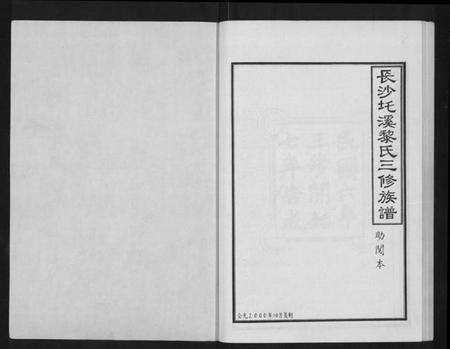 長沙圫溪黎氏三修族譜
助閱本
公元2000年10月复制